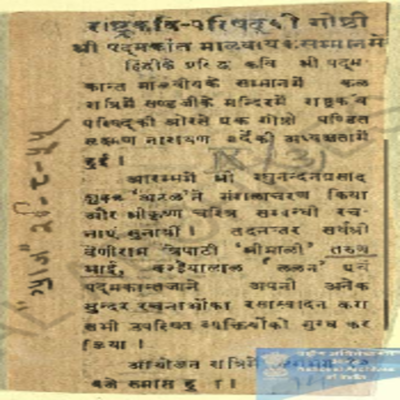 राष्ट्रकवि-परिषद्की गोष्ठी
श्री पद्मकांत मालवीयके सम्मानमें
हिंदीके प्रसिद्ध कवि श्री पद्म-
कान्त मालवीयके सम्मानमें कल
रात्रिमें मन्दिरमें राष्ट्रकवि
परिषद्की ओरसे एक गोष्ठी पण्डित
लक्ष्मण नारायण गर्देकी अध्यक्षतामें
हुई ।
आरम्भमें श्री रघुनन्दनप्रसाद
शुक्ल 'अटल'ने मंगलाचरण किया
और श्रीकृष्ण चरित्र सम्बन्धी रच-
नाएं सुनायीं । तदनन्तर सर्वश्री
वेणीराम त्रिपाठी 'श्रीमाली' तरुण
भाई, कन्हैयालाल 'ललन' एवं
पद्मकान्तजीने अपनी अनेक
सुन्दर रचनाओंका रसास्वादन करा
सभी उपस्थित व्यक्तियोंको मुग्ध कर
दिया ।
आयोजन रात्रिमें
बजे समाप्त हुआ ।
"आज"
National Archives